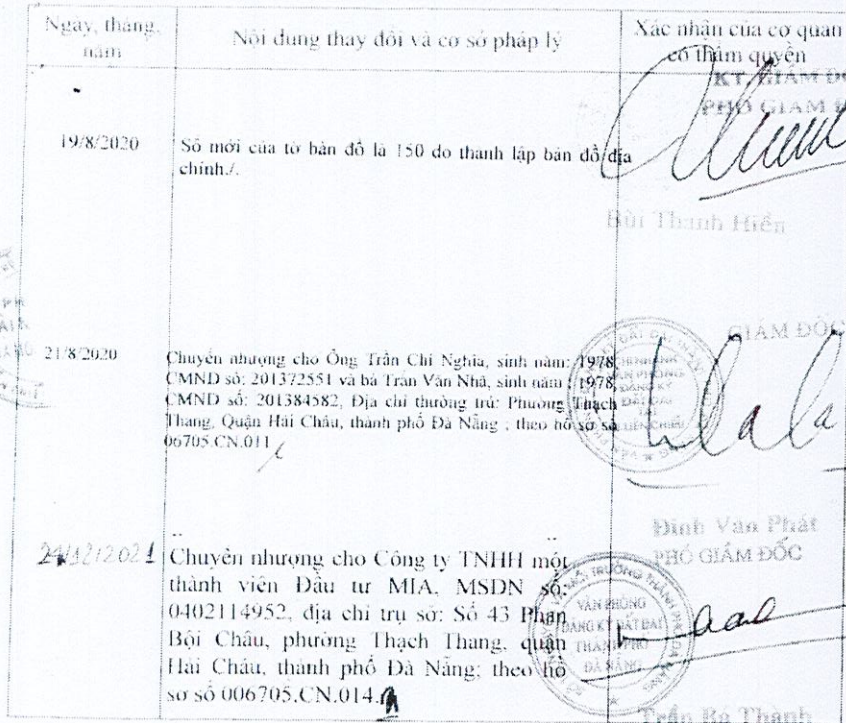 Ngày, tháng, năm
Nội dung thay đổi và cơ sở pháp lý
Xác nhận của cơ quan
có thẩm quyền
KT. GIÁM ĐỐ
PHÓ GIÁM Đ
19/8/2020
Số mới của tờ bản đồ là 150 do thành lập bản đồ địa
chính./.
Bùi Thanh Hiền
21/8/2020
Chuyển nhượng cho Ông Trần Chí Nghĩa, sinh năm: 1978,
CMND số: 201372551 và bà Trần Vân Nhã, sinh năm : 1978,
CMND số: 201384582, Địa chỉ thường trú: Phường Thạch
Thang, Quận Hải Châu, thành phố Đà Nẵng ; theo hồ sơ số
06705.CN.011
GIÁM ĐỐC
CHI NHÁNH
VĂN PHÒNG
ĐĂNG KÝ
ĐẤT ĐAI
LIÊN CHIỂU
Đinh Văn Phát
12/2021
Chuyển nhượng cho Công ty TNHH một
thành viên Đầu tư MIA, MSDN số:
0402114952, địa chỉ trụ sở: Số 43 Phan
Bội Châu, phường Thạch Thang, quận
Hải Châu, thành phố Đà Nẵng; theo hồ
sơ số 006705.CN.014.
PHÓ GIÁM ĐỐC
VĂN PHÒNG
ĐĂNG KÝ ĐẤT ĐAI
THÀNH PHỐ
ĐÀ NẴNG
Trần Bá Thành